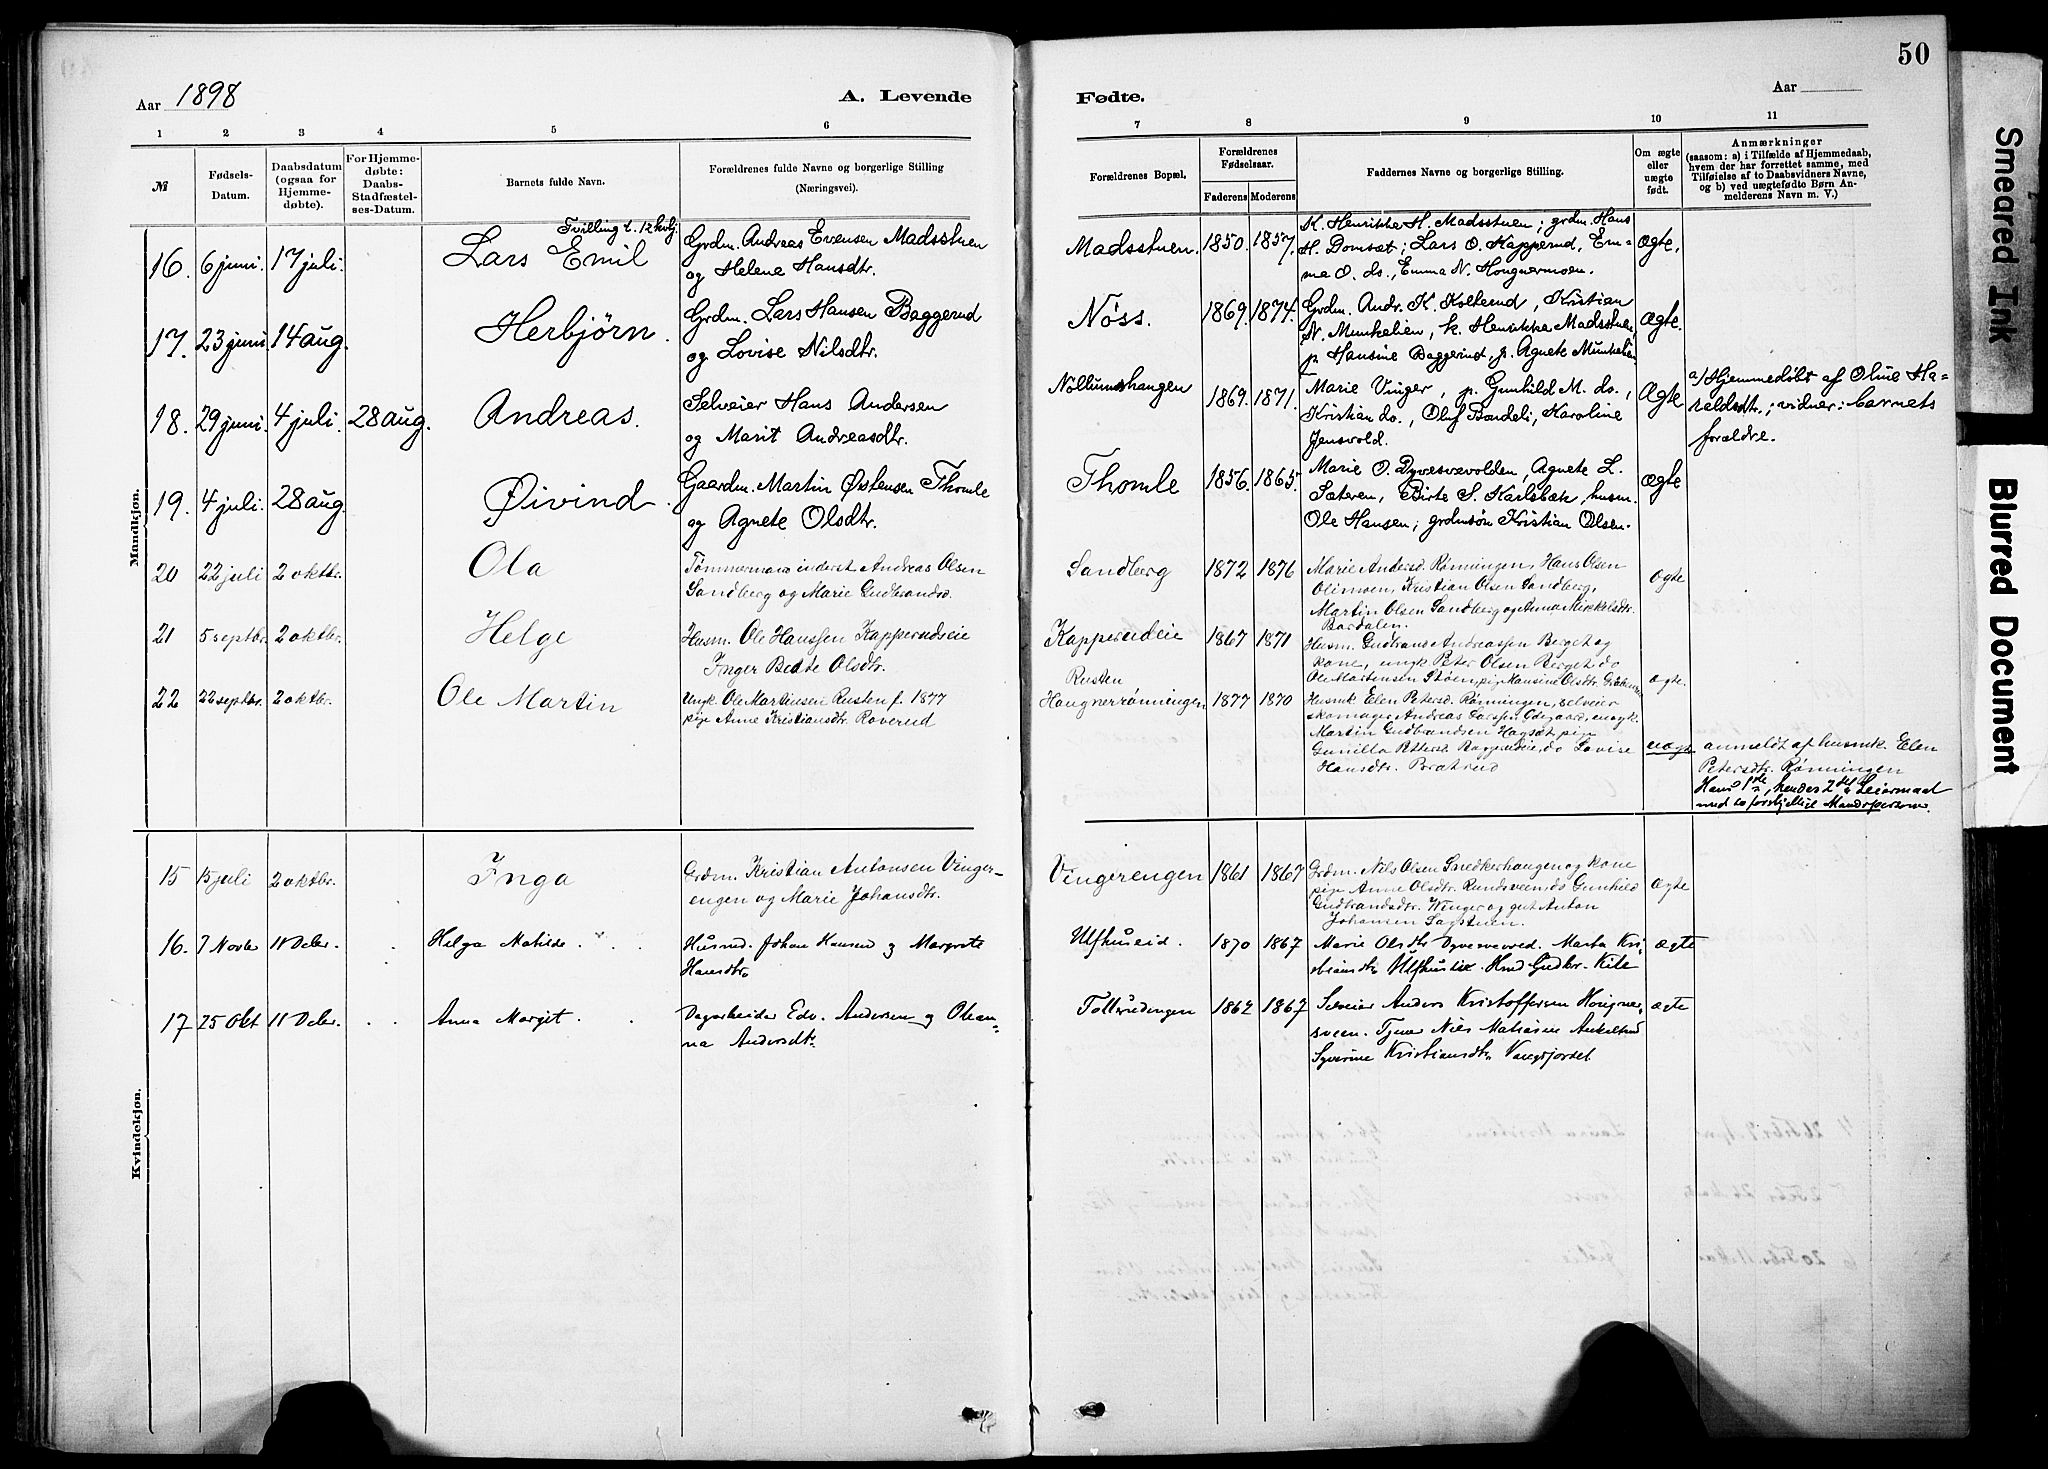 50
Aar 1898
A. Levende
Fødte.
Aar
1 2 3 4 5 6 7 8 9 10 11
№
Fødsels-
Datum.
Daabsdatum
(ogsaa for
Hjemme-
døbte).
For Hjemme-
døbte:
Daabs-
Stadfæstel-
ses-Datum.
Barnets fulde Navn.
Forældrenes fulde Navne og borgerlige Stilling
(Næringsvei).
Forældrenes Bopæl.
Forældrenes
Fødselsaar.
Faderens Moderens
Faddernes Navne og borgerlige Stilling.
Om ægte
eller
uægte
født.
Anmærkninger
(saasom: a) i Tilfælde af Hjemmedaab,
hvem der har forrettet samme, med
Tilføielse af to Daabsvidners Navne,
og b) ved uægtefødte Børn An-
melderens Navn m. V.)
Mandkjøn.
Tvilling t. 12 kvkj.
16. 6 juni. 17 juli. Lars Emil
Grdm. Andreas Evensen Madsstuen
og Helene Hansdtr.
Madsstuen. 1850. 1857.
K. Henrikke H. Madsstuen; grdm. Hans
H. Domsæt; Lars O. Kapperud, Em-
ma O. ds., Emma N. Hongnermoen.
Ægte.
17. 23 juni 14 aug. Herbjörn.
Grdm. Lars Hansen Baggerud
og Lovise Nilsdtr.
Nöss. 1869. 1874.
Grdm. Andr. K. Kolterud, Kristian
N. Munkelien, k. Henrikke Madsstuen,
p. Hansine Baggerud, p. Agnete Munkelien
Ægte.
18. 29 juni. 4 juli. 28 aug. Andreas.
Selveier Hans Andersen
og Marit Andreasdtr.
Nöllumshaugen 1869. 1871.
Marie Vinger, p. Gunhild M. do.,
Kristian do., Oluf Bændeli, Karoline
Jensvold.
Ægte
a/ Hjemmedöbt af Oline Ha-
raldsdtr.; vidner: barnets
forældre.
19. 4 juli. 28 aug. Øivind.
Gaardm. Martin Østensen Thomle
og Agnete Olsdtr.
Thomle 1856. 1865.
Marie O. Dyvesvevolden, Agnete L.
Sæteren, Birte S. Karlsbæk, husm.
Ole Hansen; grdmsön Kristian Olsen.
Ægte
20 22 juli 2 oktbr. Ola
Tømmermand inderst Andreas Olsen
Sandberg og Marie Gudbrandsd.
Sandberg 1872 1876
Marie Andersd. Rønningen, Hans Olsen
Olimoen, Kristian Olsen Sandberg,
Martin Olsen Sandberg og Anna Mikkelsdtr.
Bærdalen.
ægte
21 5 septbr. 2 oktbr. Helge
Husm. Ole Hanssen Kapperudeie
Inger Beate Olsdtr.
Kapperudeie 1867 1871
Husm. Gudbrand Andreassen Berget og
kone, ungk. Peter Olsen Berget, do
Ole Martensen Stöen, pige Hansine Olsdtr.
ægte.
22 22 septbr. 2 oktbr. Ole Martin
Ungk. Ole Martinsen Rusten f. 1877
pige Anne Kristiansdtr. Roverud
Rusten
Haugnerrønningen 1877 1870
Husmk. Elen Petersd. Rønningen, selveier
skomager Andreas Larssen Odegaard, ungk.
Martin Gudbrandsen Hagsæt, pige
Gunilla Pettersd. Baggerudeie, do Lovise
Hansdtr. Bratrud
uægte
anmeldt af husmk. Elen
Petersdtr. Rønningen
Hans 1ste, hendes 2det Leiermaal
med to forskjellige Mandspersoner.
Kvindekjøn.
15 15 juli 2 oktbr. Inga
Grdm. Kristian Antonsen Vinger-
engen og Marie Johansdtr.
Vingerengen 1861 1867
Grdm. Nils Olsen Snedkerhaugen og kone
pige Anne Olsdtr. Rundsveen, do Gunhild
Gudbrandsdtr. Winger og gut Anton
Johansen Sagstuen.
ægte
16. 7 Novbr 11 Decbr. Helga Matilde.
Husmd. Johan Hansen og Margrete
Hansdtr.
Ulfhuseid. 1870 1867
Marie Olsdtr Dyvesveved. Marta Kri-
stiansdtr Ulfhuseie. Hmd Gudbr. Kile
ægte
17 25 Okt 11 Decbr. Anna Margit.
Dagarbeider Edv. Andersen og Olean-
na Andersdtr.
Tollerudengen 1862 1867
Selveier Anders Kristoffersen Hougner-
sveen. Tjener Niels Matiasen Ankelrud
Syverine Kristiansdtr. Vangsjordet
ægte
Smeared Ink
Blurred Document